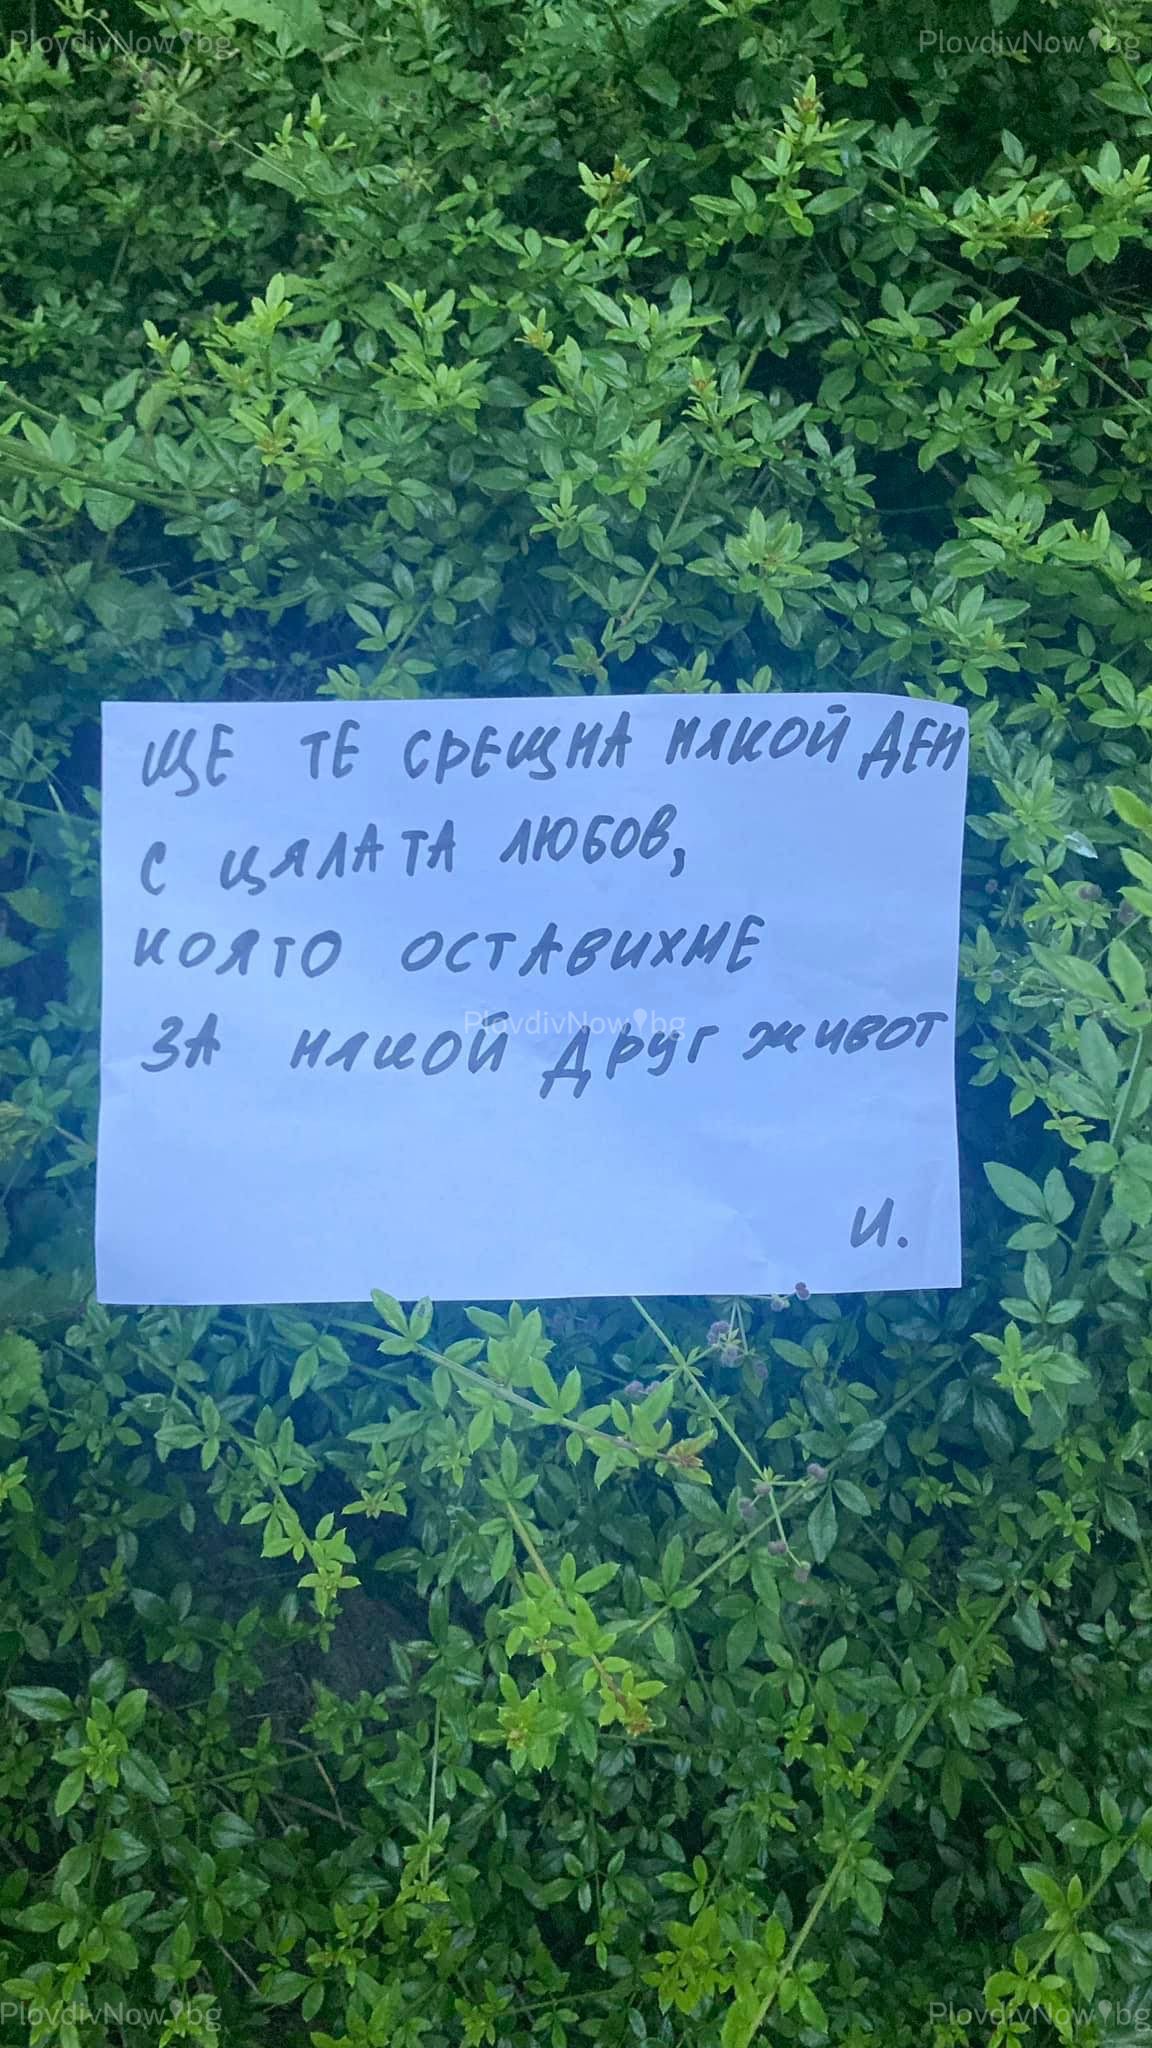 PlovdivNow bg PlovdivNow bg
ЩЕ ТЕ СРЕЩНА НЯКОЙ ДЕН
С ЦЯЛАТА ЛЮБОВ,
КОЯТО ОСТАВИХМЕ
PlovdivNow bg
ЗА НЯКОЙ ДРУГ ЖИВОТ
И.
PlovdivNow bg PlovdivNow bg